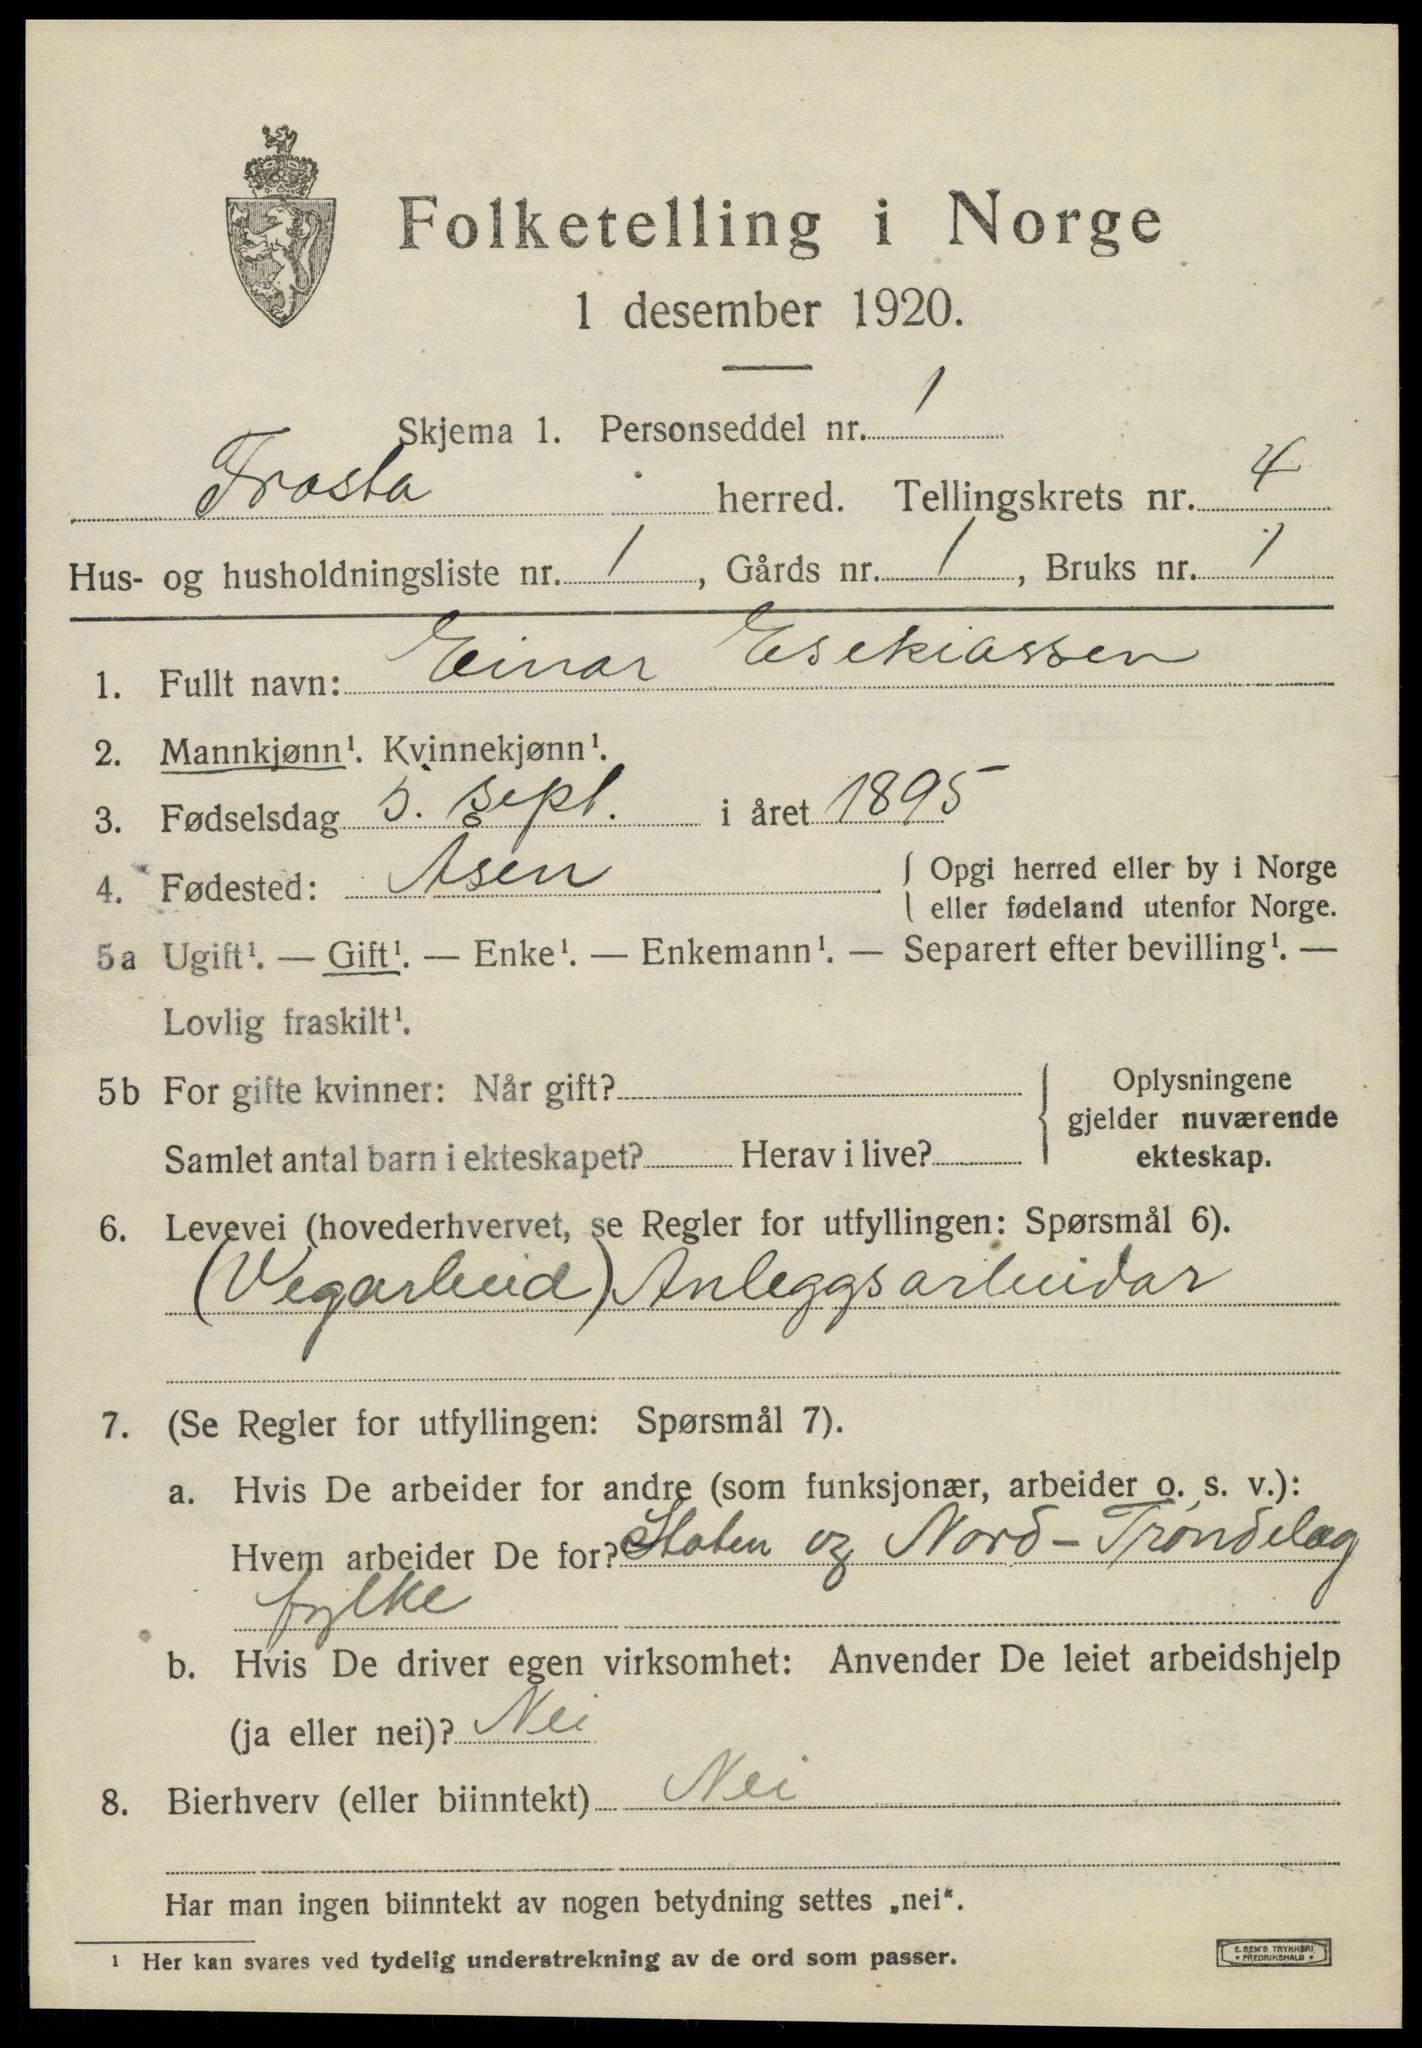 Folketelling i Norge
1 desember 1920.
Skjema 1. Personseddel nr. 1
Frosta herred. Tellingskrets nr. 4
Hus- og husholdningsliste nr. 1, Gårds nr. 1, Bruks nr. 1
1. Fullt navn: Einar Esekiassen
2. Mannkjønn¹. Kvinnekjønn¹.
3. Fødselsdag 5. sept. i året 1895
4. Fødested: Åsen { Opgi herred eller by i Norge
eller fødeland utenfor Norge.
5a Ugift¹. — Gift¹. — Enke¹. — Enkemann¹. — Separert efter bevilling¹. —
Lovlig fraskilt¹.
5b For gifte kvinner: Når gift? { Oplysningene
gjelder nuværende
Samlet antal barn i ekteskapet? Herav i live? ekteskap.
6. Levevei (hovederhvervet, se Regler for utfyllingen: Spørsmål 6).
(Vegarbeid) Anleggsarbeidar
7. (Se Regler for utfyllingen: Spørsmål 7).
a. Hvis De arbeider for andre (som funksjonær, arbeider o. s. v.):
Hvem arbeider De for? Staten og Nord-Trøndelag
fylke
b. Hvis De driver egen virksomhet: Anvender De leiet arbeidshjelp
(ja eller nei)? Nei
8. Bierhverv (eller biinntekt) Nei
Har man ingen biinntekt av nogen betydning settes „nei“.
¹ Her kan svares ved tydelig understrekning av de ord som passer.
E. SEM'S TRYKKERI
• FREDRIKSHALD •